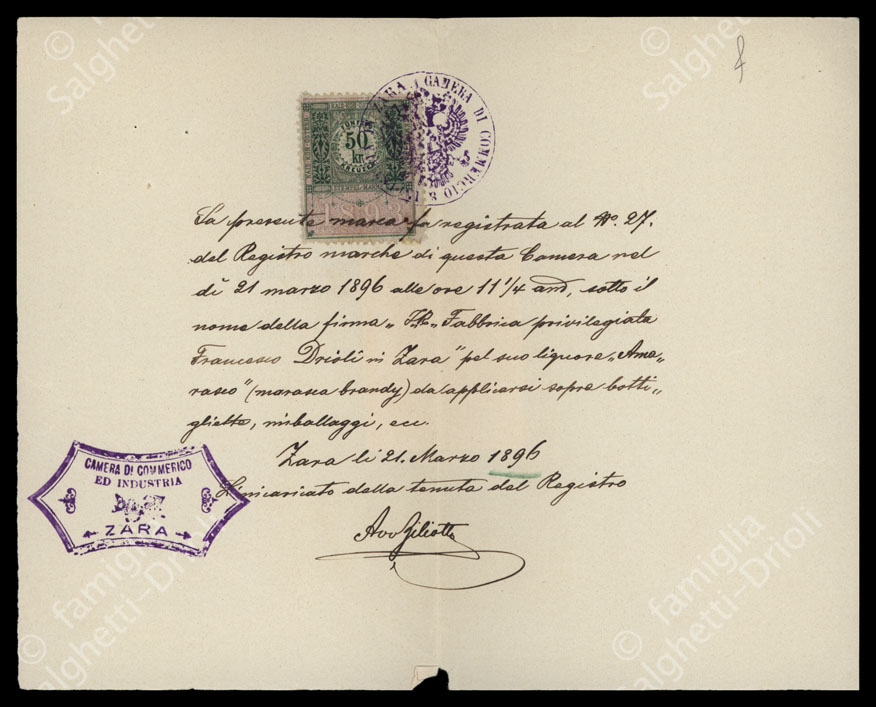 © famiglia
Salghetti-Drioli
ZARA
CAMERA DI COMMERCIO E
FÜNFZIG
50
kr.
KREUZER
STEMPEL-MARKE
1893
La presente marca fu registrata al No. 27.
del Registro marche di questa Camera nel
dì 21 marzo 1896 alle ore 11 1/4 ant, sotto il
nome della firma „I.R. Fabbrica privilegiata
Francesco Drioli in Zara" pel suo liquore „Ama-
rasco" (marasca brandy) da applicarsi sopra botti„
gliette, imballaggi, ecc.
Zara li 21. Marzo 1896
L'incaricato della tenuta del Registro
Avv Ziliotto
CAMERA DI COMMERICO
ED INDUSTRIA
ZARA
© famiglia
Salghetti-Drioli
© famiglia
Salghetti-Drioli